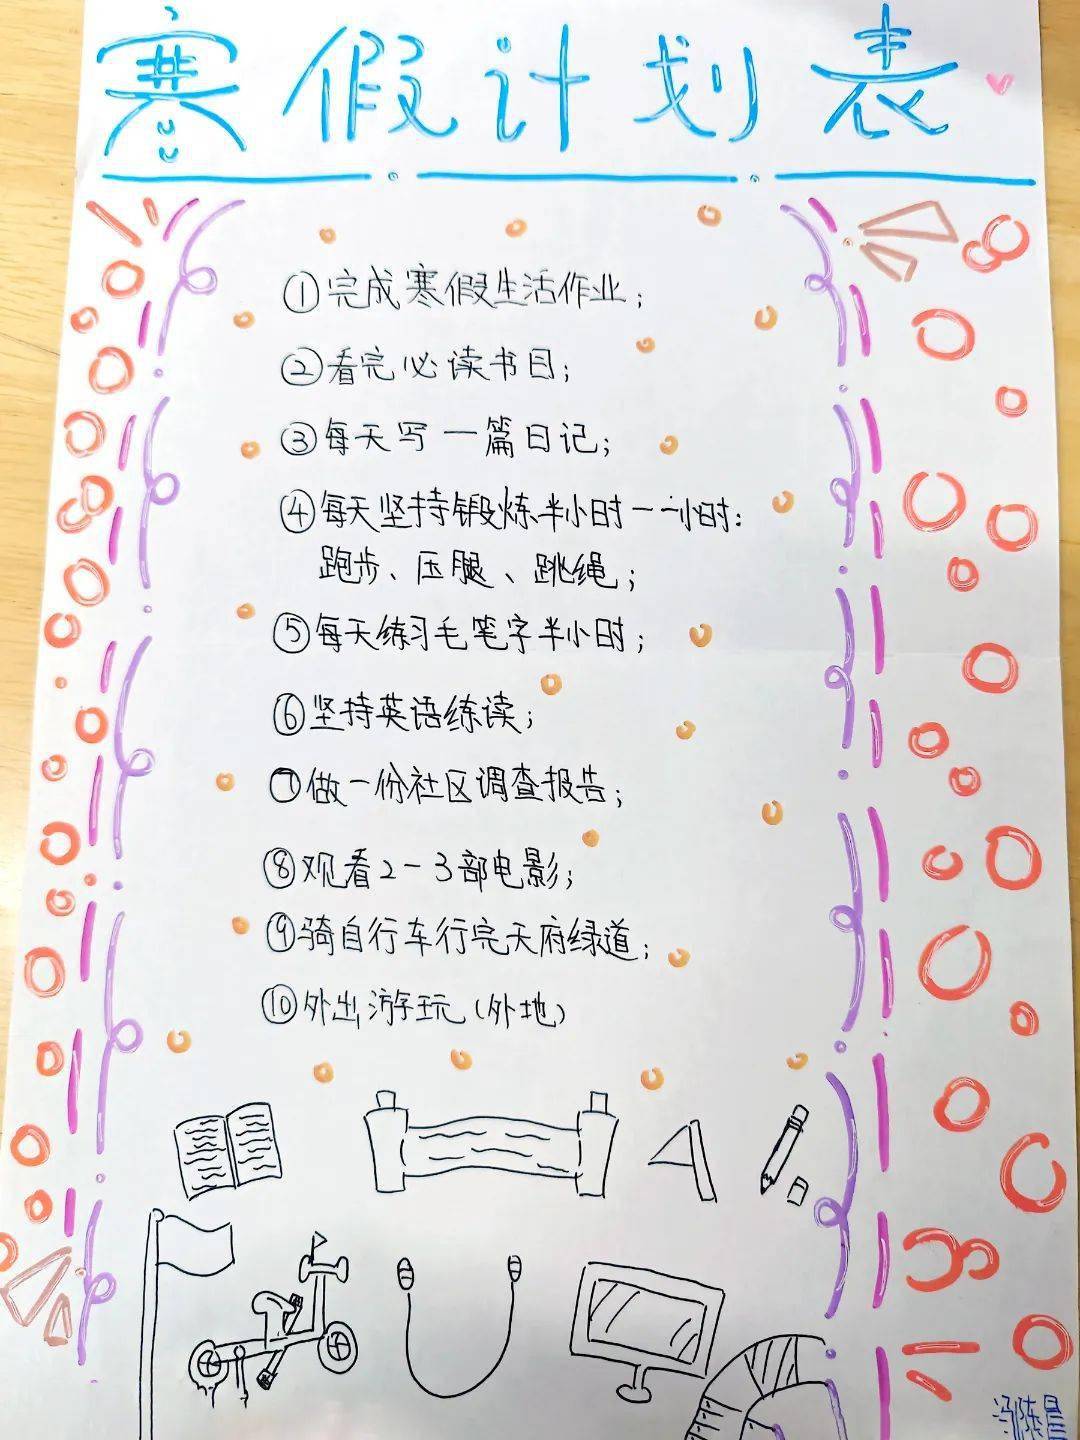 寒假计划表
①完成寒假生活作业；
②看完必读书目；
③每天写一篇日记；
④每天坚持锻炼半小时一一小时：
跑步、压腿、跳绳；
⑤每天练习毛笔字半小时；
⑥坚持英语练读；
⑦做一份社区调查报告；
⑧观看2-3部电影；
⑨骑自行车行完天府绿道；
⑩外出游玩（外地）